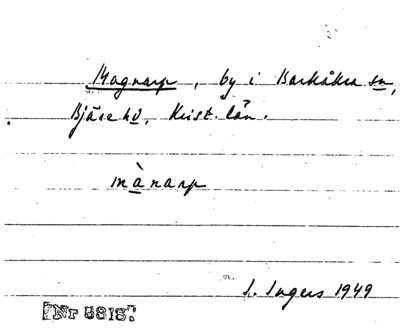 Magnarp, by i Barkåkra sn,
Bjäre hd, Krist. län.
mànarp
I. Ingers 1949
Nr 5818